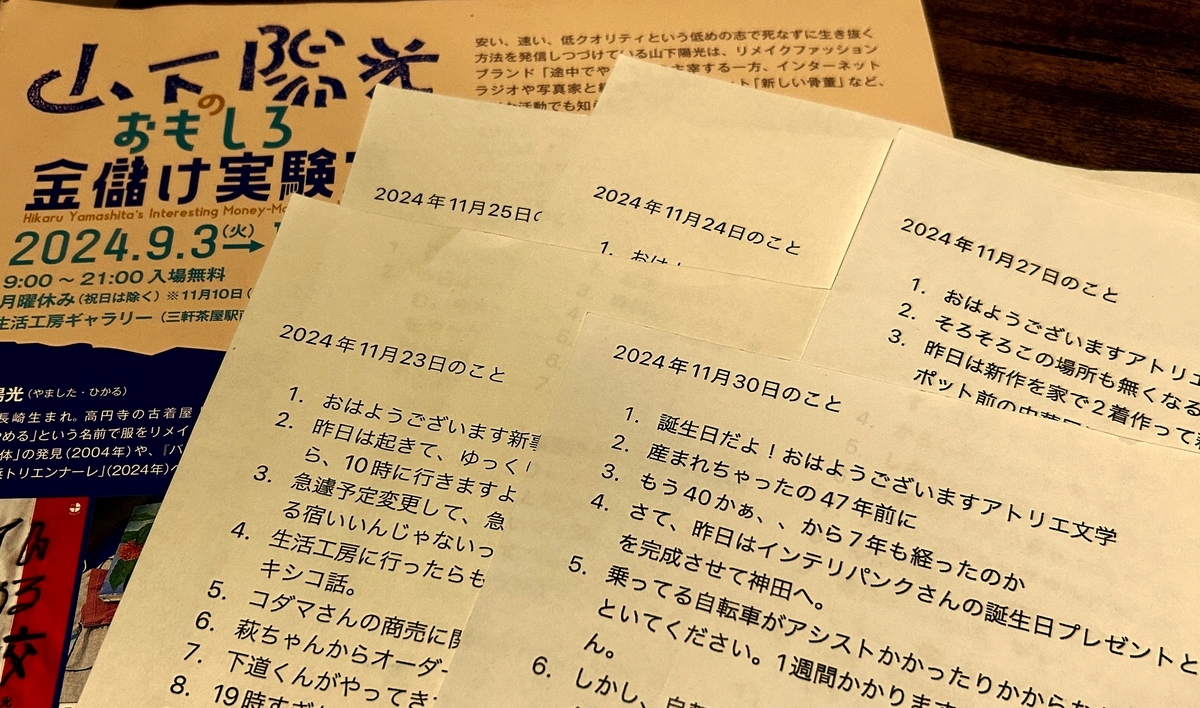 山下陽光
の
おもしろ
金儲け実験
Hikaru Yamashita's Interesting Money-M
2024.9.3(火)→
9:00～21:00 入場無料
月曜休み(祝日は除く)※11月10日(
生活工房ギャラリー(三軒茶屋駅
安い、速い、低クオリティという低めの志で死なずに生き抜く
方法を発信しつづけている山下陽光は、リメイクファッション
ブランド「途中でや 主宰する一方、インターネット
ラジオや写真家と ト「新しい骨董」など、
活動でも知
陽光(やました・ひかる)
長崎生まれ。高円寺の古着屋
やめる」という名前で服をリメイ
体」の発見(2004年)や、『バ
トリエンナーレ」(2024年)
2024年11月25日
2024年11月24日のこと
1. おは
2024年11月27日のこと
1. おはようございますアトリエ
2. そろそろこの場所も無くなる
3. 昨日は新作を家で2着作って
ポット前の中華
2024年11月23日のこと
1. おはようございます新
2. 昨日は起きて、ゆっく
ら、10時に行きますよ
3. 急遽予定変更して、急
る宿いいんじゃないっ
4. 生活工房に行ったらも
キシコ話。
5. コダマさんの商売に関
6. 萩ちゃんからオーダー
7. 下道くんがやってき
8. 19時すぎ
2024年11月30日のこと
1. 誕生日だよ！おはようございますアトリエ文学
2. 産まれちゃったの47年前に
3. もう40かぁ、、から7年も経ったのか
4. さて、昨日はインテリパンクさんの誕生日プレゼントと
を完成させて神田へ。
5. 乗ってる自転車がアシストかかったりかからな
といてください。1週間かかります
ん。
6. しかし、自転